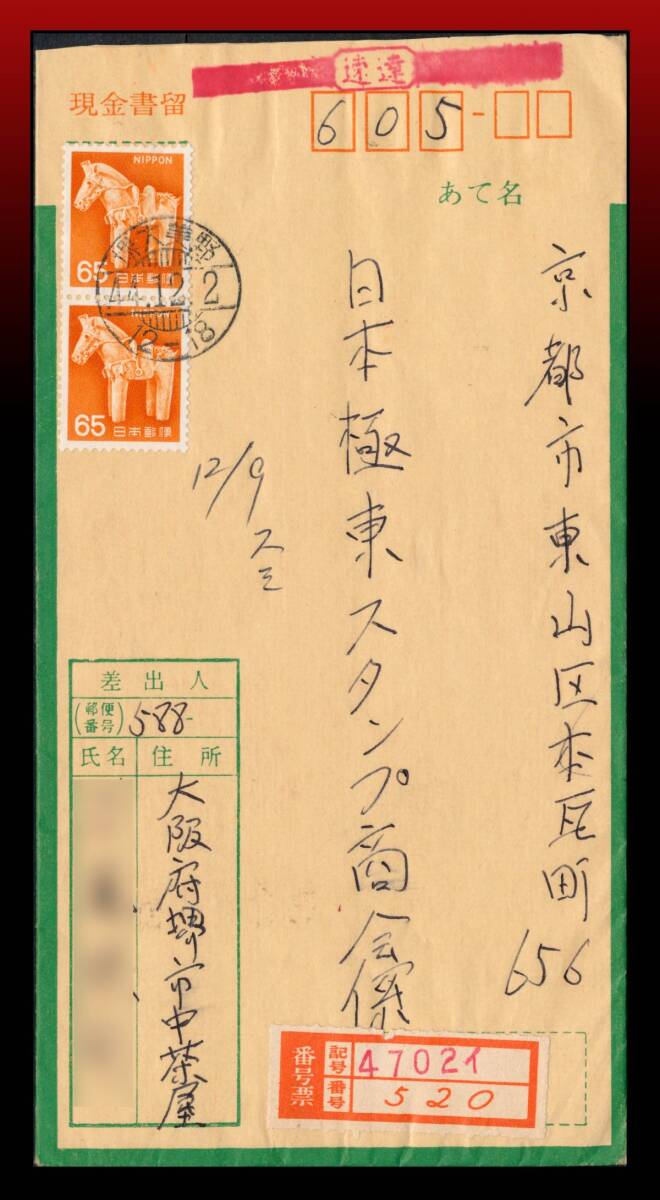 速達
現金書留
605-
あて名
京都市東山区本瓦町
656
日本極東スタンプ商会
NIPPON
65 日本郵便
44.12.2
12-18
65 日本郵便
12/9
スミ
差出人
(郵便番号) 588-
氏名 住所
大阪府堺市中茶屋
番号票
記号 47021
番号 520